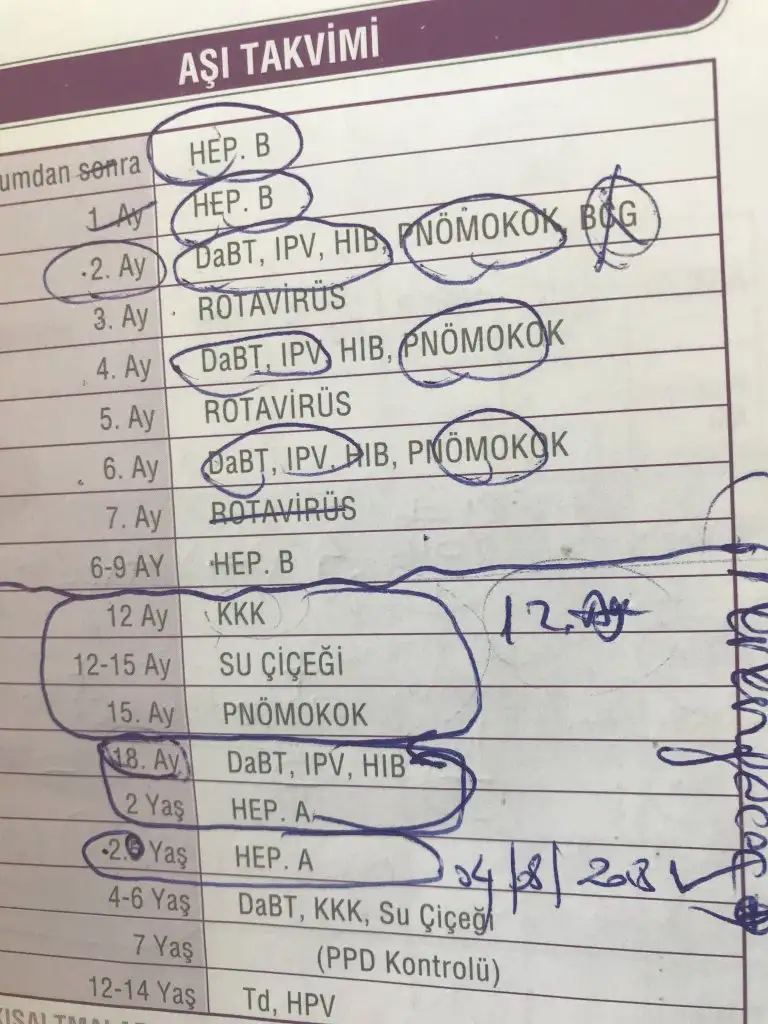 AŞI TAKVİMİ
umdan sonra HEP. B
1. Ay HEP. B
2. Ay DaBT, IPV, HIB, PNÖMOKOK, BCG
3. Ay ROTAVİRÜS
4. Ay DaBT, IPV, HIB, PNÖMOKOK
5. Ay ROTAVİRÜS
6. Ay DaBT, IPV, HIB, PNÖMOKOK
7. Ay ROTAVİRÜS
6-9 AY HEP. B
12 Ay KKK 12. Ay
12-15 Ay SU ÇİÇEĞİ
15. Ay PNÖMOKOK
18. Ay DaBT, IPV, HIB
2 Yaş HEP. A
2. Yaş HEP. A 04/08/
4-6 Yaş DaBT, KKK, Su Çiçeği
7 Yaş (PPD Kontrolü)
12-14 Yaş Td, HPV